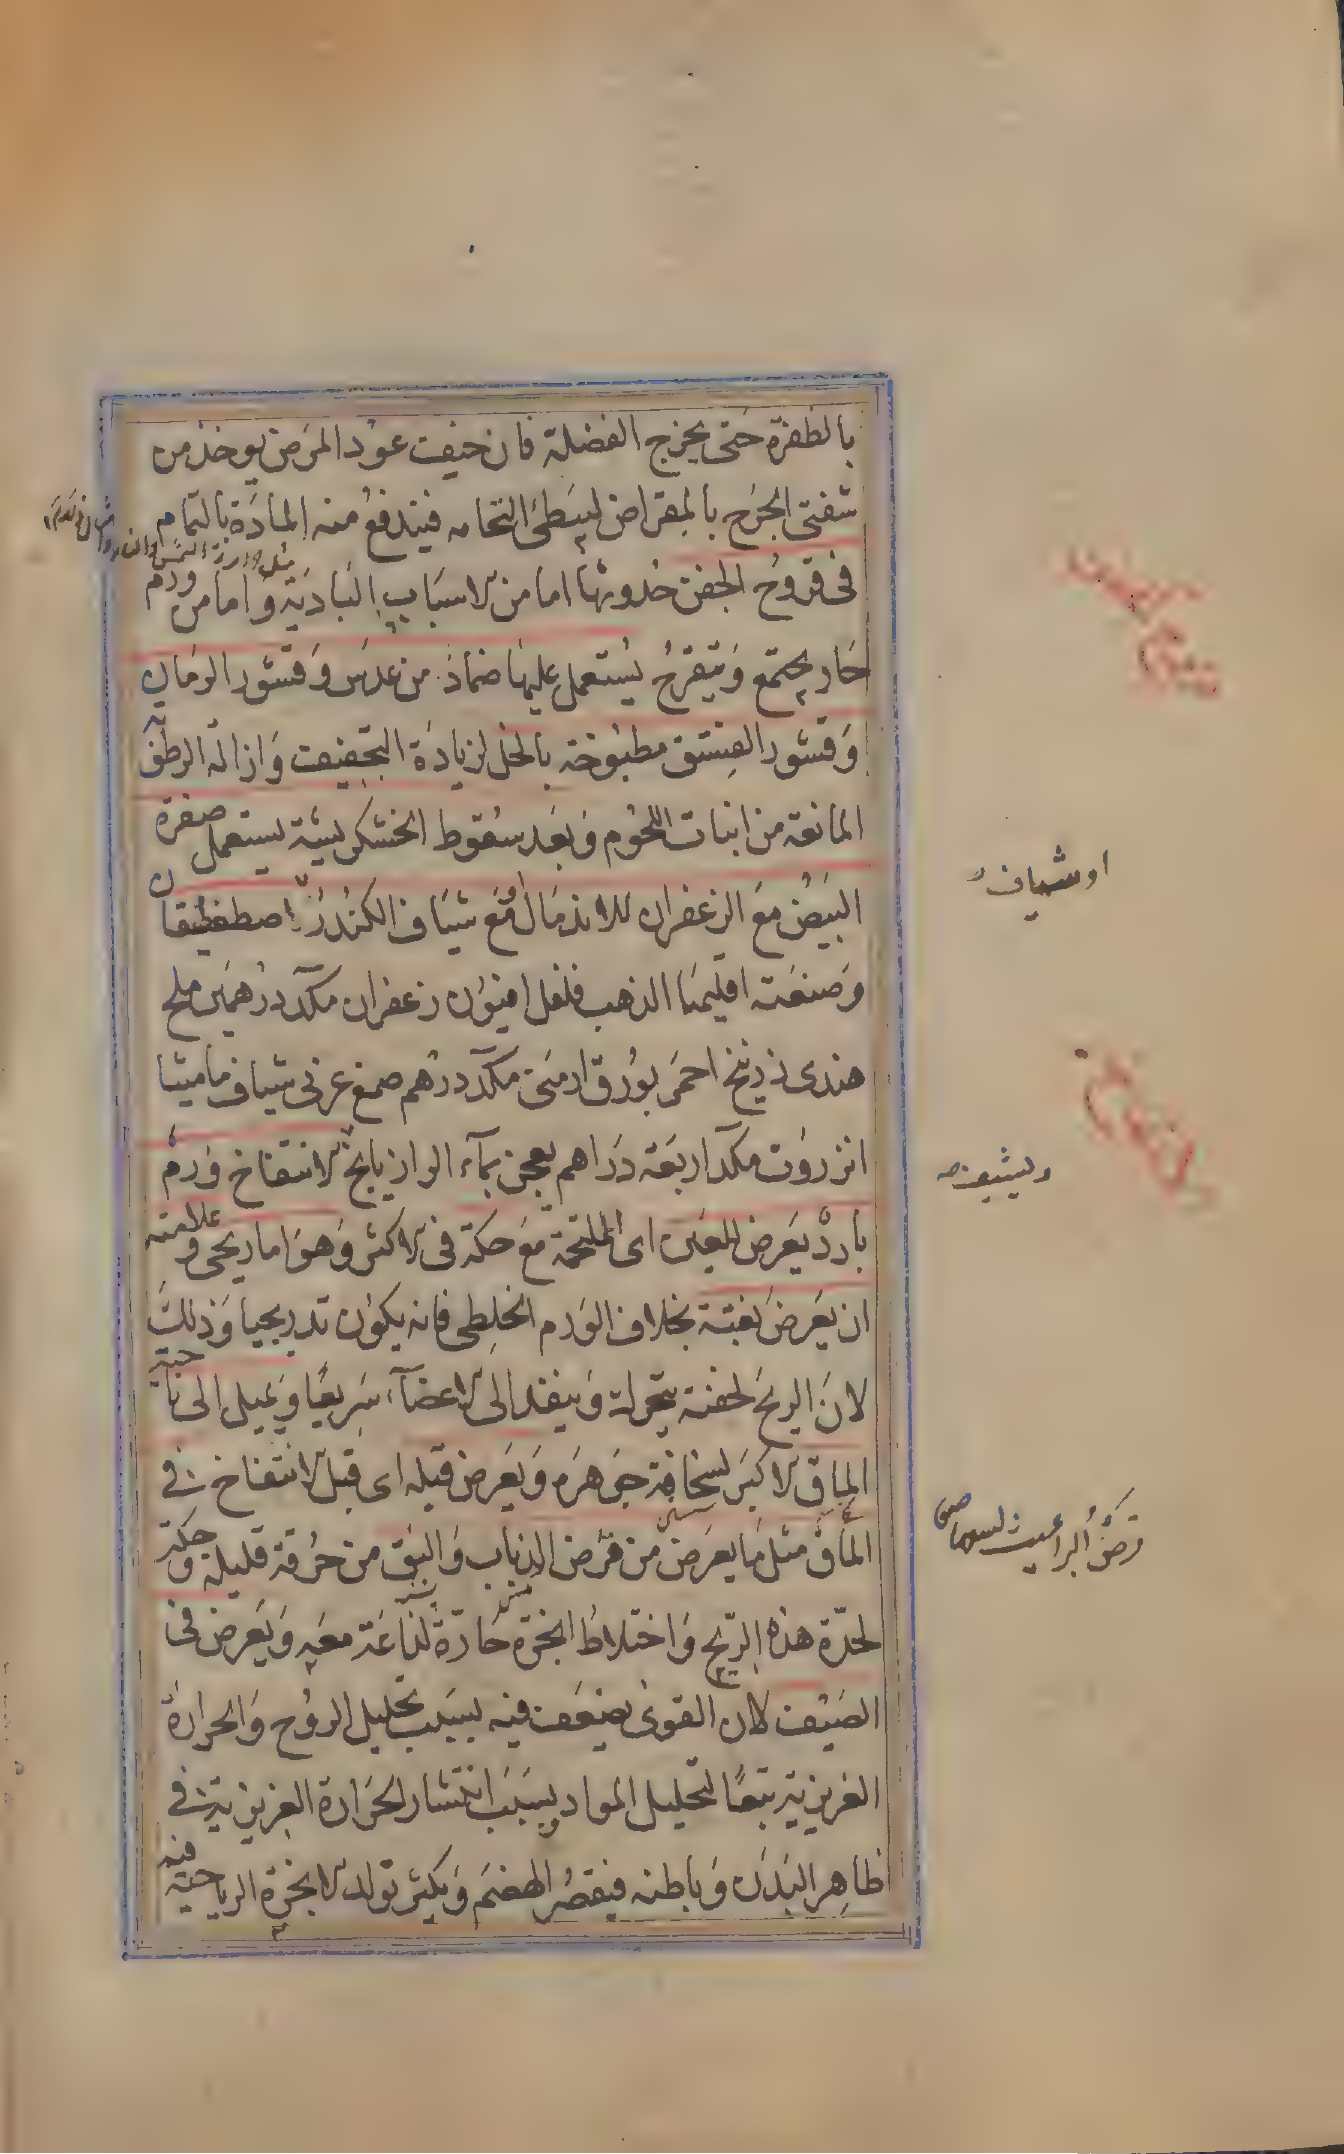 بالظفرة حتى يخرج الفضلة فان خيف عود المرض يوخذ من
شفتى الجرح بالمقراض ليبطئ التحامه فيندفع منه المادة بالتمام
فى قروح الجفن حدوثها اما من الاسباب البادية و اما من ورم
حار يجتمع و يتقرح يستعمل عليها ضماد من عدس و قشور الرمان
و قشور الفستق مطبوخة بالخل لزيادة التجفيف و ازالة الرطوبة
المانعة من انبات اللحوم و بعد سقوط الخشكريشة يستعمل صفرة
البيض مع الزعفران للاندمال او مع شياف الكندر اصطفطيقان
و صنعته اقليميا الذهب فلفل افيون زعفران مكد درهمين ملح
هندى زرنيخ احمر بورق ارمنى مكد درهم صمغ عربى شياف ماميثا
انزروت مكد اربعة دراهم يعجن بماء الرازيانج الانتفاخ ورم
بارد يعرض للعين اى الملتحمة مع حكة فى الاكثر و هو اما ريحى و علامته
ان يعرض بغتة بخلاف الورم الخلطى فانه يكون تدريجيا و ذلك
لان الريح لخفته يتحرك و ينفذ الى الاعضاء سريعا و يميل الى ناحية
الماق الاكبر لسخافة جوهره و يعرض قبله اى قبل الانتفاخ فى
الماق مثل ما يعرض من قرص الذباب و البق من حرقة قليلة و حكة
لحدة هذه الريح و اختلاط ابخرة حادة لذاعة معه و يعرض فى
الصيف لان القوى يضعف فيه بسبب تحليل الروح و الحرارة
الغريزية تبعا لتحليل المواد بسبب انتشار الحرارة الغريزية فى
ظاهر البدن و باطنه فيقصر الهضم و يكثر تولد الابخرة الرياحية فيه
او شياف
و يشيف
قرص البراغيث